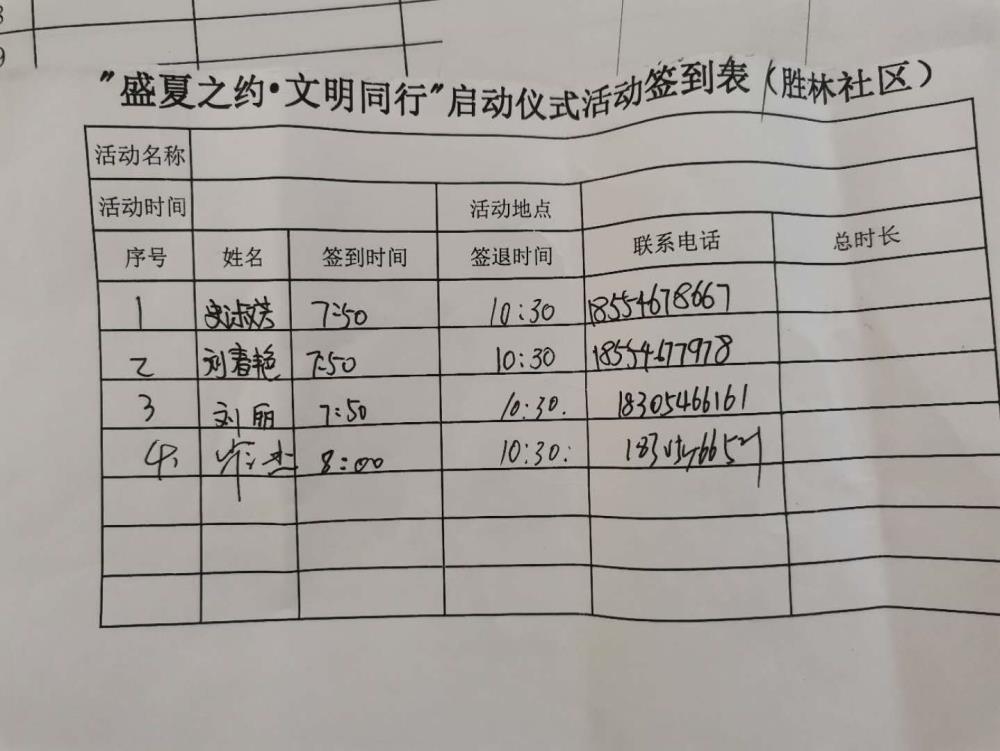 8
9
"盛夏之约·文明同行"启动仪式活动签到表（胜林社区）
活动名称
活动时间 活动地点
序号 姓名 签到时间 签退时间 联系电话 总时长
1 7:50 10:30 18554678667
2 刘春艳 7:50 10:30 18554677978
3 刘丽 7:50 10:30. 18305466161
4. 8:00 10:30: